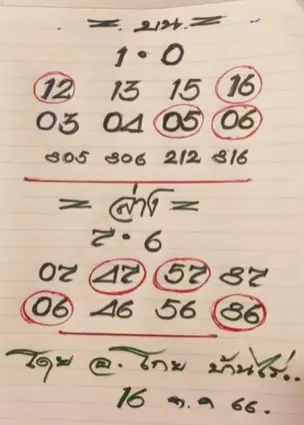 = บน =
1 · 0
12 13 15 16
03 04 05 06
805 806 212 816
= ล่าง =
7 · 6
07 47 57 87
06 46 56 86
โดย อ. โกย บ้านไร่..
16 ต.ค 66.